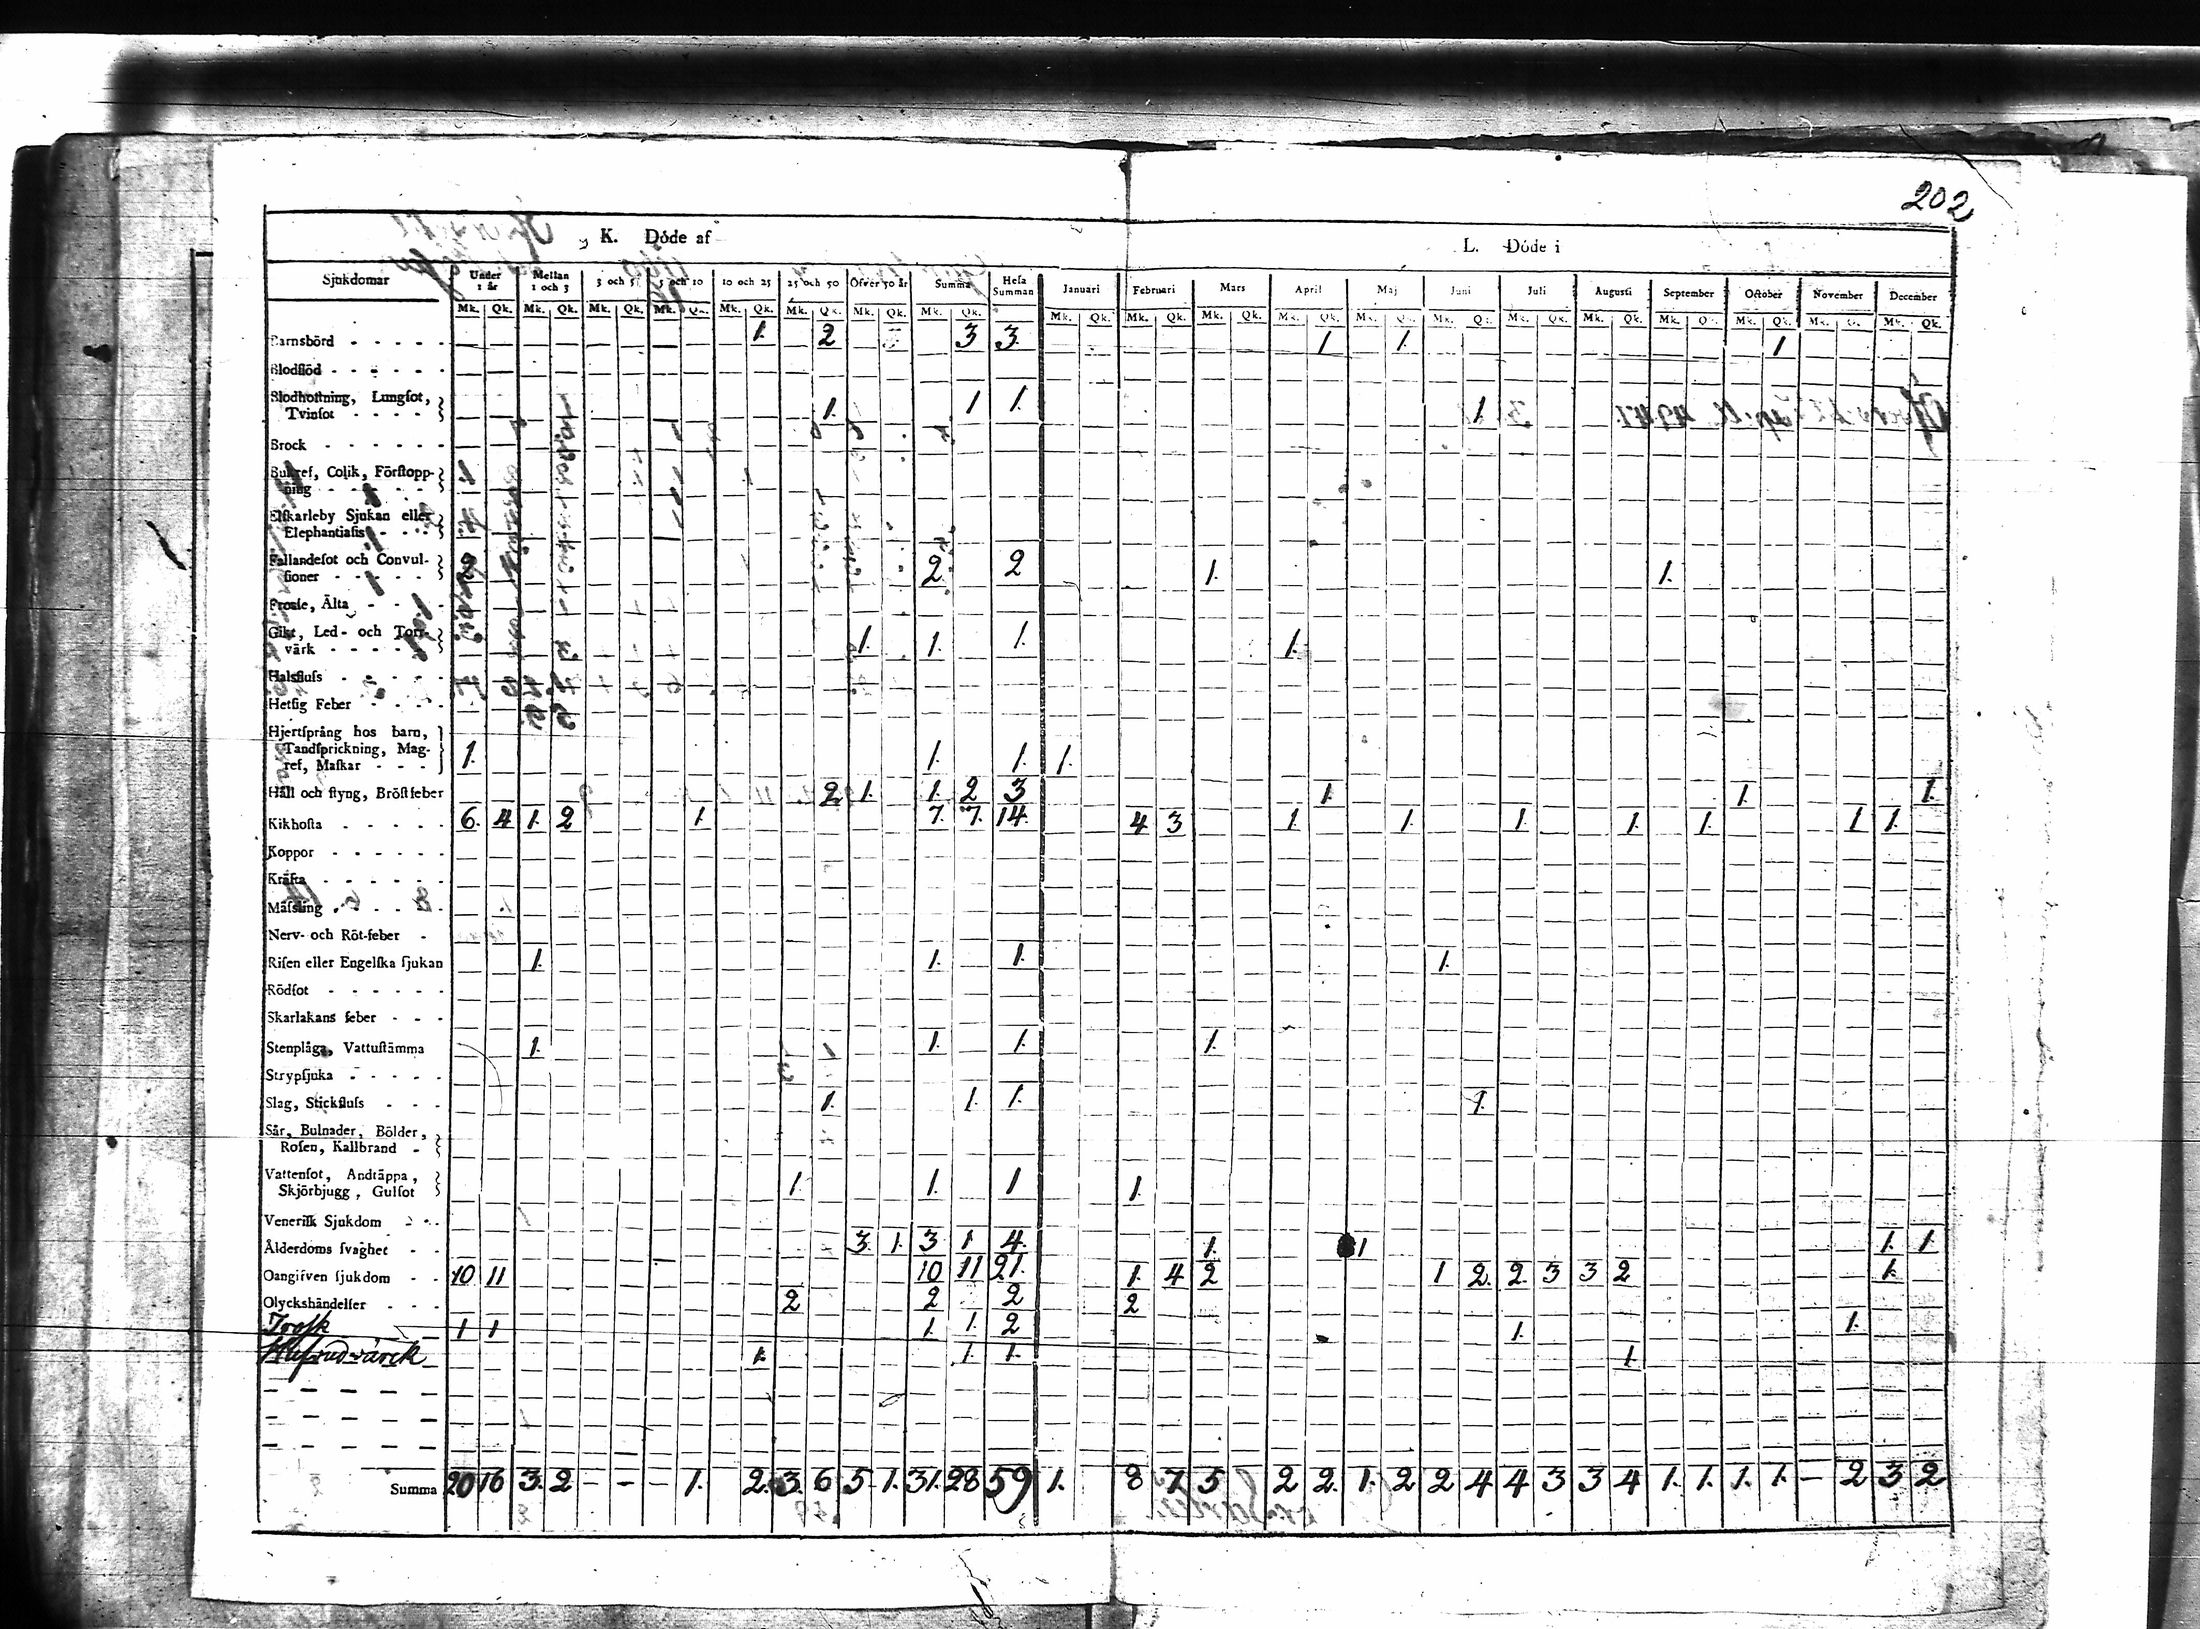 202
K. Döde af
L. Döde i
Sjukdomar Under 1 år Mellan 1 och 3 3 och 5 5 och 10 10 och 25 25 och 50 Öfver 50 år Summa Hela Summan Januari Februari Mars April Maj Juni Juli Augusti September October November December
Mk. Qk. Mk. Qk. Mk. Qk. Mk. Qk. Mk. Qk. Mk. Qk. Mk. Qk. Mk. Qk. Mk. Qk. Mk. Qk. Mk. Qk. Mk. Qk. Mk. Qk. Mk. Qk. Mk. Qk. Mk. Qk. Mk. Qk. Mk. Qk. Mk. Qk. Mk. Qk.
Barnsbörd - - - - - 1. 2 3 3. 1 1. 1
Blodflöd - - - - - -
Blodhostning, Lungsot,
Tvinsot - - - - 1. 1 1. 1
Brock - - - - - -
Bukref, Colik, Förstopp-
ning - - - - -
Elskarleby Sjukan eller
Elephantiasis - - -
Fallandesot och Convul-
sioner - - - - - 2 2 2 1. 1.
Frosse, Älta - - -
Gikt, Led- och Torr-
värk - - - - - 1. 1. 1. 1.
Halsfluss - - - - -
Hetsig Feber - - - -
Hjertsprång hos barn,
Tandsprickning, Mag-
ref, Maskar - - - 1. 1. 1. 1.
Håll och styng, Bröstfeber 2 1. 1. 2 3 1. 1. 1.
Kikhosta - - - - - 6. 4 1. 2 1. 7. 7. 14. 4 3 1. 1. 1. 1. 1. 1 1.
Koppor - - - - - -
Kräfta - - - - - -
Mässling - - - - -
Nerv- och Röt-feber -
Risen eller Engelska sjukan 1. 1. 1. 1.
Rödsot - - - - - -
Skarlakans feber - - -
Stenplåga, Vattustämma 1. 1. 1. 1.
Strypsjuka - - - - -
Slag, Stickfluss - - - 1. 1. 1. 1.
Sår, Bulnader, Bölder,
Rosen, Kallbrand -
Vattensot, Andtäppa,
Skjörbjugg, Gulsot 1. 1. 1 1.
Venerisk Sjukdom - - -
Ålderdoms svaghet - - 3. 1. 3 1 4. 1. 1 1. 1
Oangifven sjukdom - - 10 11 10 11 21. 1. 4 2 1 2. 2. 3 3 2 1.
Olyckshändelser - - - 2 2 2 2
Trosk 1 1 1. 1. 2 1. 1.
Hufvudvärck 1. 1. 1. 1.
Summa 20 16 3. 2 - - - 1. 2. 3. 6 5 1. 31. 28 59 1. 8 7 5 2 2. 1. 2 2 4 4 3 3 4 1. 1. 1. 1. - 2 3 2